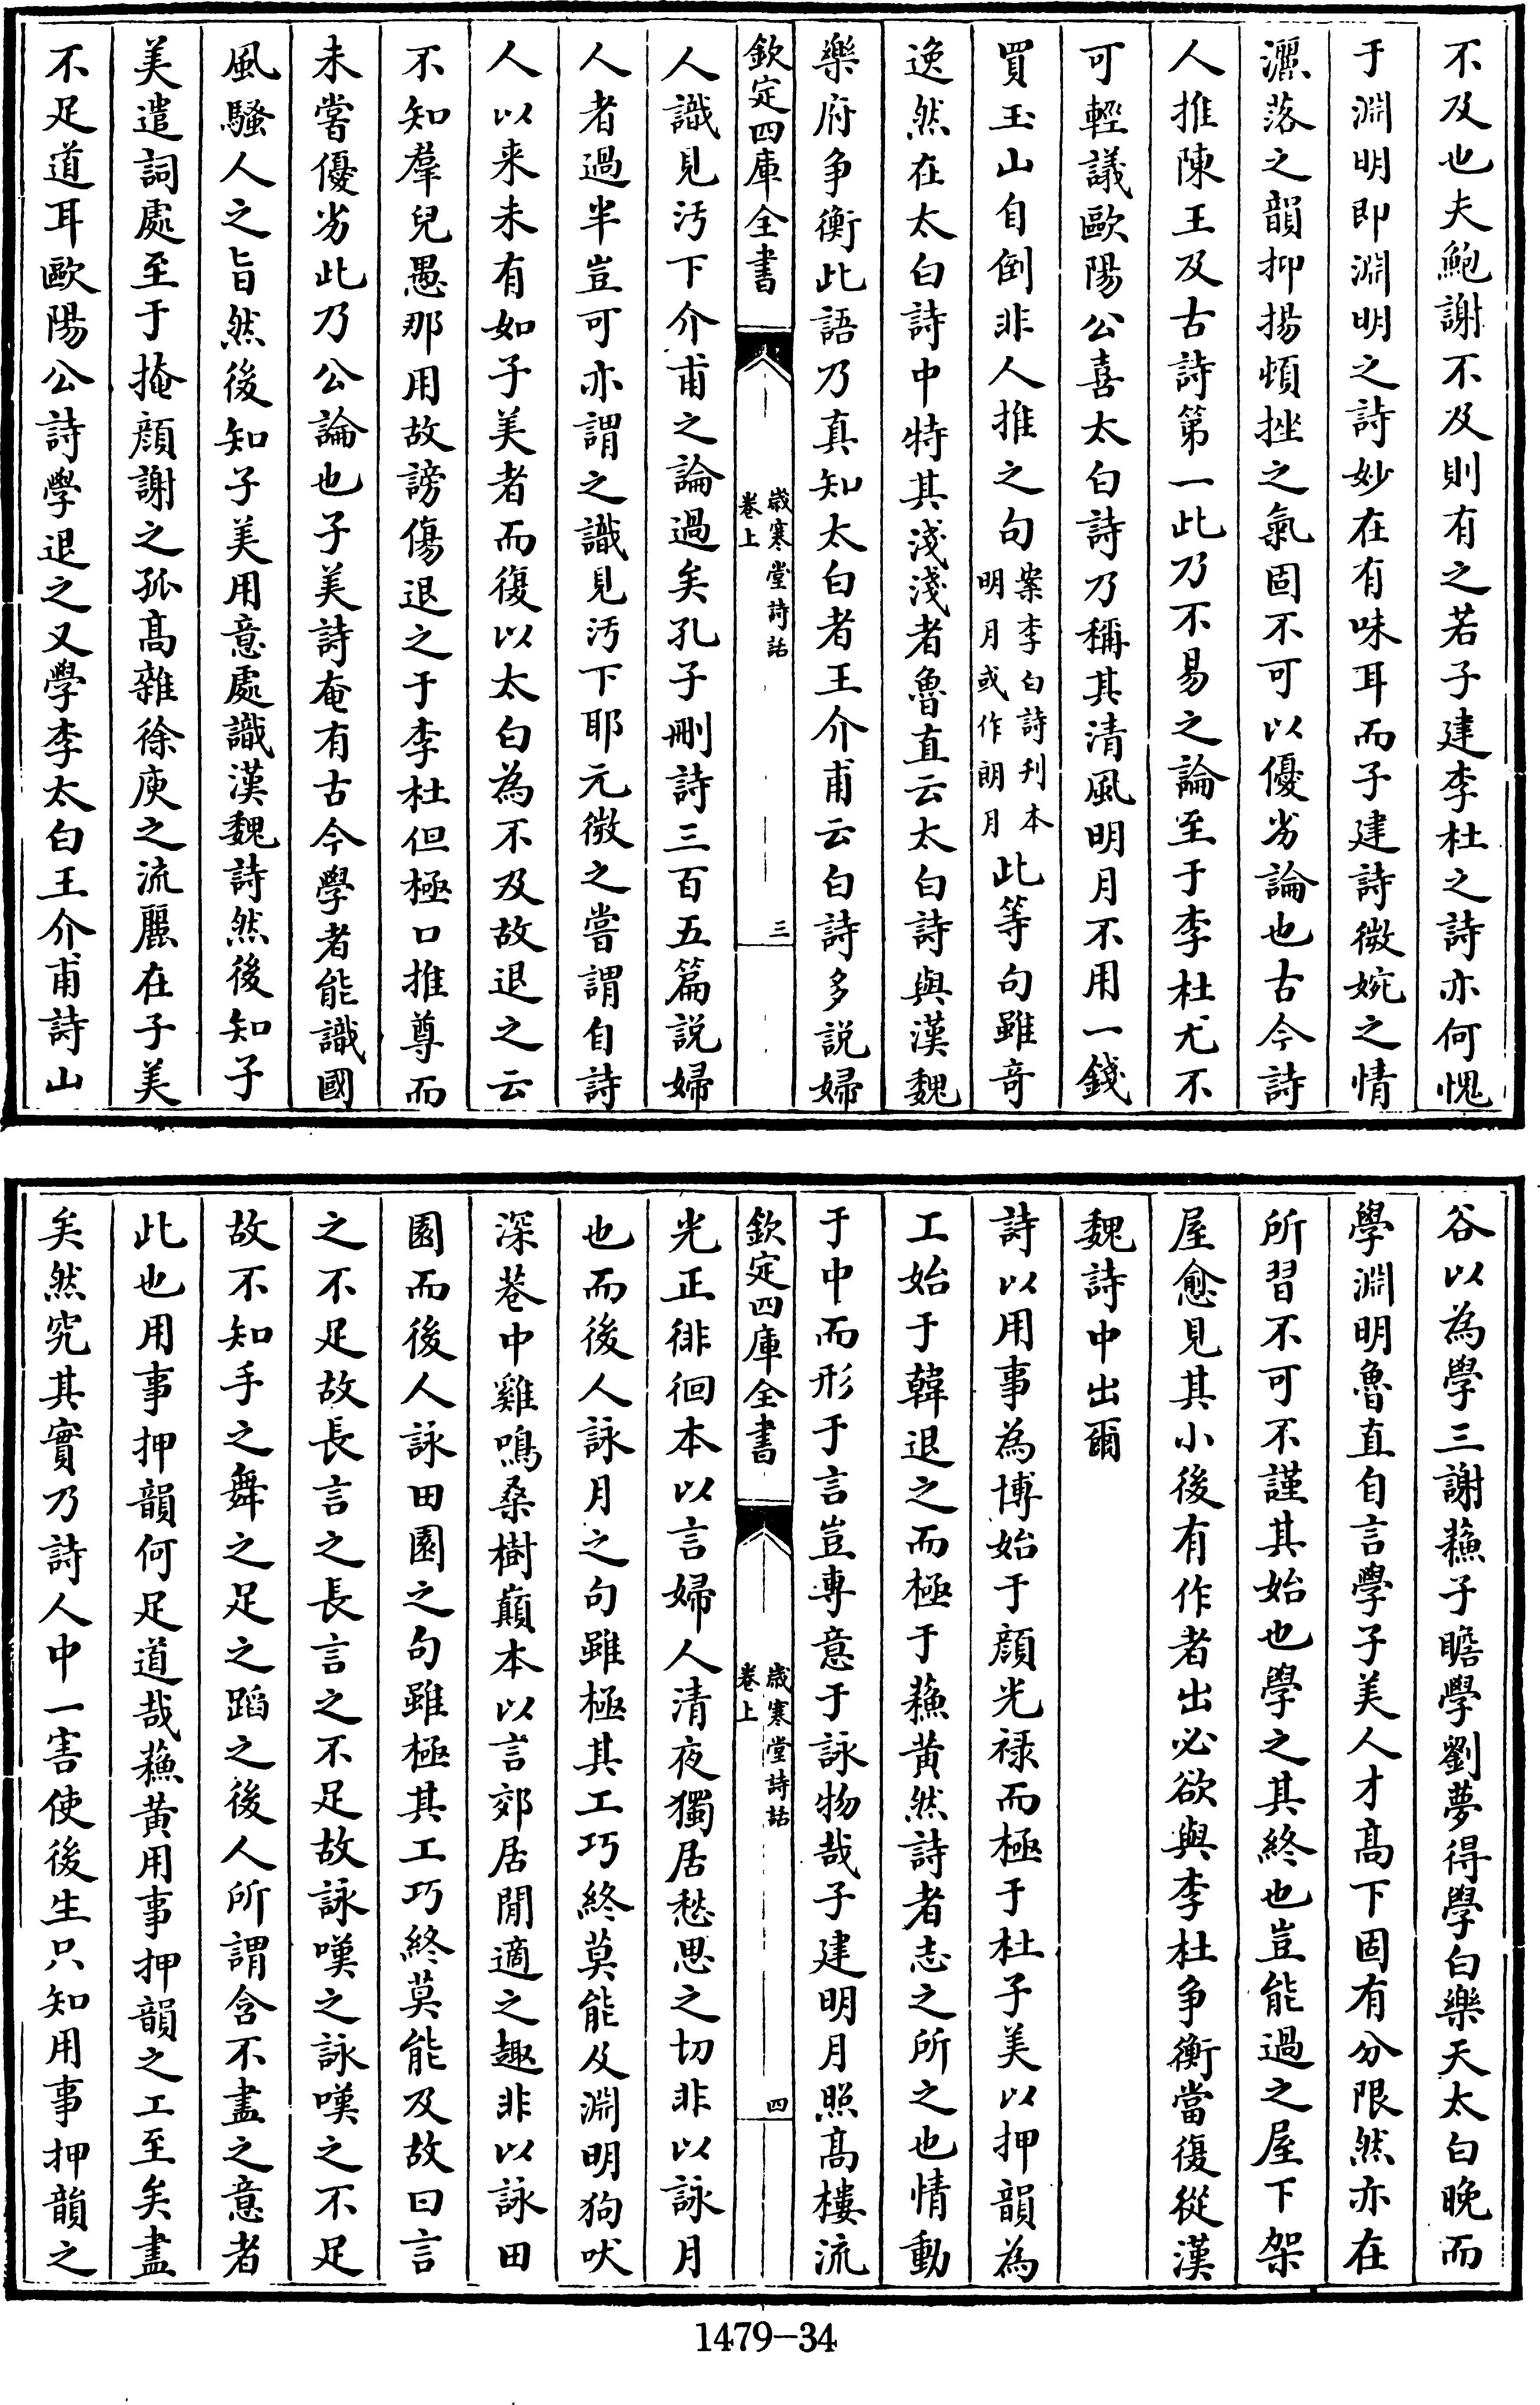 不及也夫鮑謝不及則有之若子建李杜之詩亦何愧
于淵明即淵明之詩妙在有味耳而子建詩微婉之情
灑落之韻抑揚頓挫之氣固不可以優劣論也古今詩
人推陳王及古詩第一此乃不易之論至于李杜尤不
可輕議歐陽公喜太白詩乃稱其清風明月不用一錢
買玉山自倒非人推之句案李白詩刋本明月或作朗月此等句雖奇
逸然在太白詩中特其淺淺者魯直云太白詩與漢魏
樂府争衡此語乃真知太白者王介甫云白詩多説婦
欽定四庫全書
歳寒堂詩話
卷上
三
人識見汚下介甫之論過矣孔子刪詩三百五篇説婦
人者過半豈可亦謂之識見汚下耶元微之嘗謂自詩
人以来未有如子美者而復以太白為不及故退之云
不知羣兒愚那用故謗傷退之于李杜但極口推尊而
未嘗優劣此乃公論也子美詩奄有古今學者能識國
風騷人之旨然後知子美用意處識漢魏詩然後知子
美遣詞處至于掩顔謝之孤髙雜徐庾之流麗在子美
不足道耳歐陽公詩學退之又學李太白王介甫詩山
谷以為學三謝蘓子瞻學劉夢得學白樂天太白晚而
學淵明魯直自言學子美人才髙下固有分限然亦在
所習不可不謹其始也學之其終也豈能過之屋下架
屋愈見其小後有作者出必欲與李杜争衡當復從漢
魏詩中出爾
詩以用事為博始于顔光禄而極于杜子美以押韻為
工始于韓退之而極于蘓黄然詩者志之所之也情動
于中而形于言豈専意于詠物哉子建明月照髙樓流
欽定四庫全書
歳寒堂詩話
卷上
四
光正徘徊本以言婦人清夜獨居愁思之切非以詠月
也而後人詠月之句雖極其工巧終莫能及淵明狗吠
深巷中雞鳴桑樹巔本以言郊居閒適之趣非以詠田
園而後人詠田園之句雖極其工巧終莫能及故曰言
之不足故長言之長言之不足故詠嘆之詠嘆之不足
故不知手之舞之足之蹈之後人所謂含不盡之意者
此也用事押韻何足道哉蘓黄用事押韻之工至矣盡
矣然究其實乃詩人中一害使後生只知用事押韻之
1479-34